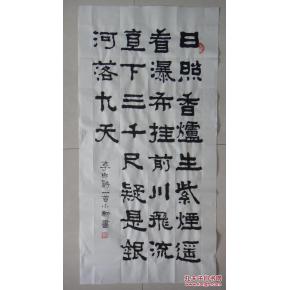 日照香爐生紫煙遥
看瀑布挂前川飛流
直下三千尺疑是銀
河落九天
李白詩一首小勤書